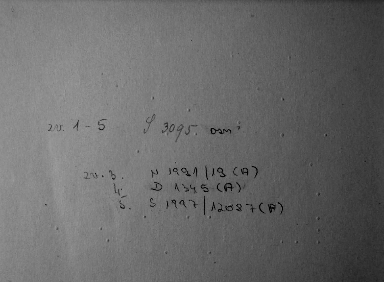 zv. 1-5 S 3095. osm:
zv. 3. N 1981/19 (A)
4. D 1345 (A)
5. S 1997/12087 (A)